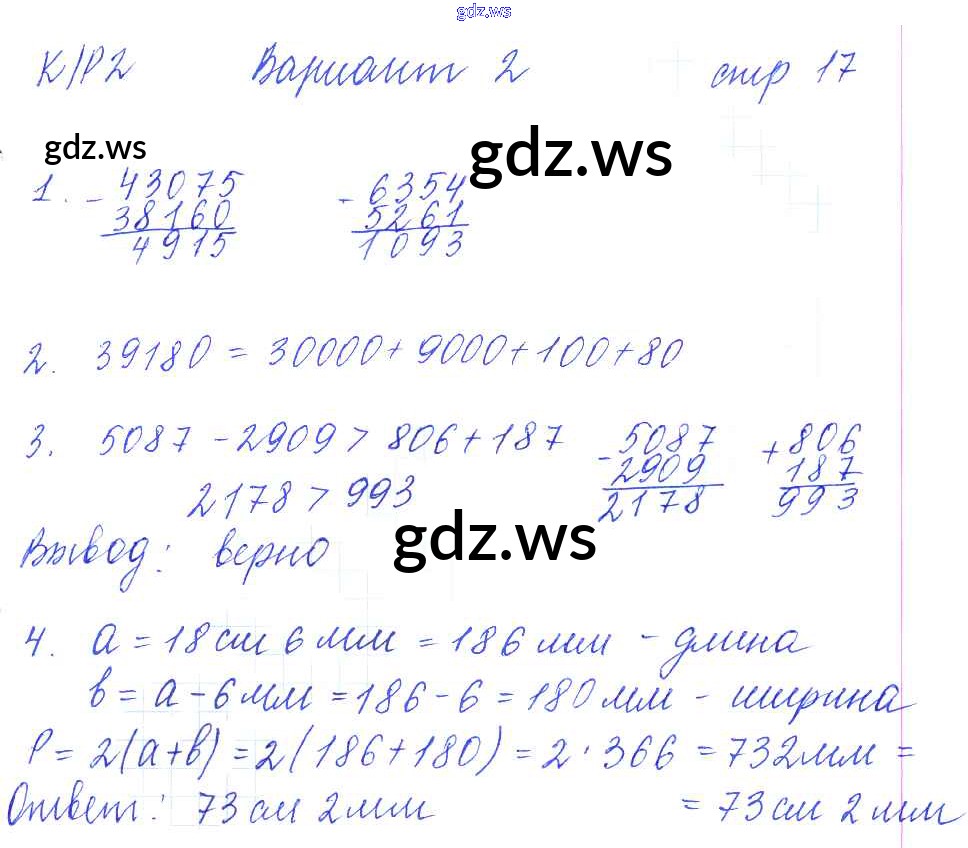 gdz.ws
К/Р2 Вариант 2 стр 17
gdz.ws gdz.ws
1. - 43075 - 6354
38160 5261
4915 1093
2. 39180 = 30000 + 9000 + 100 + 80
3. 5087 - 2909 > 806 + 187 - 5087 + 806
2909 187
2178 > 993 2178 993
gdz.ws
Вывод: верно
4. a = 18 см 6 мм = 186 мм - длина
в = a - 6 мм = 186 - 6 = 180 мм - ширина
P = 2(a+в) = 2(186+180) = 2 · 366 = 732 мм =
Ответ: 73 см 2 мм = 73 см 2 мм